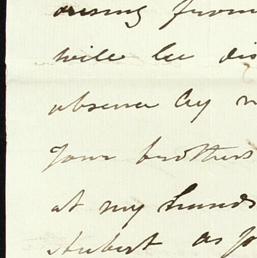 arising from
will be dis
absence by m
Your brothers
at my hands
Hubert as yo